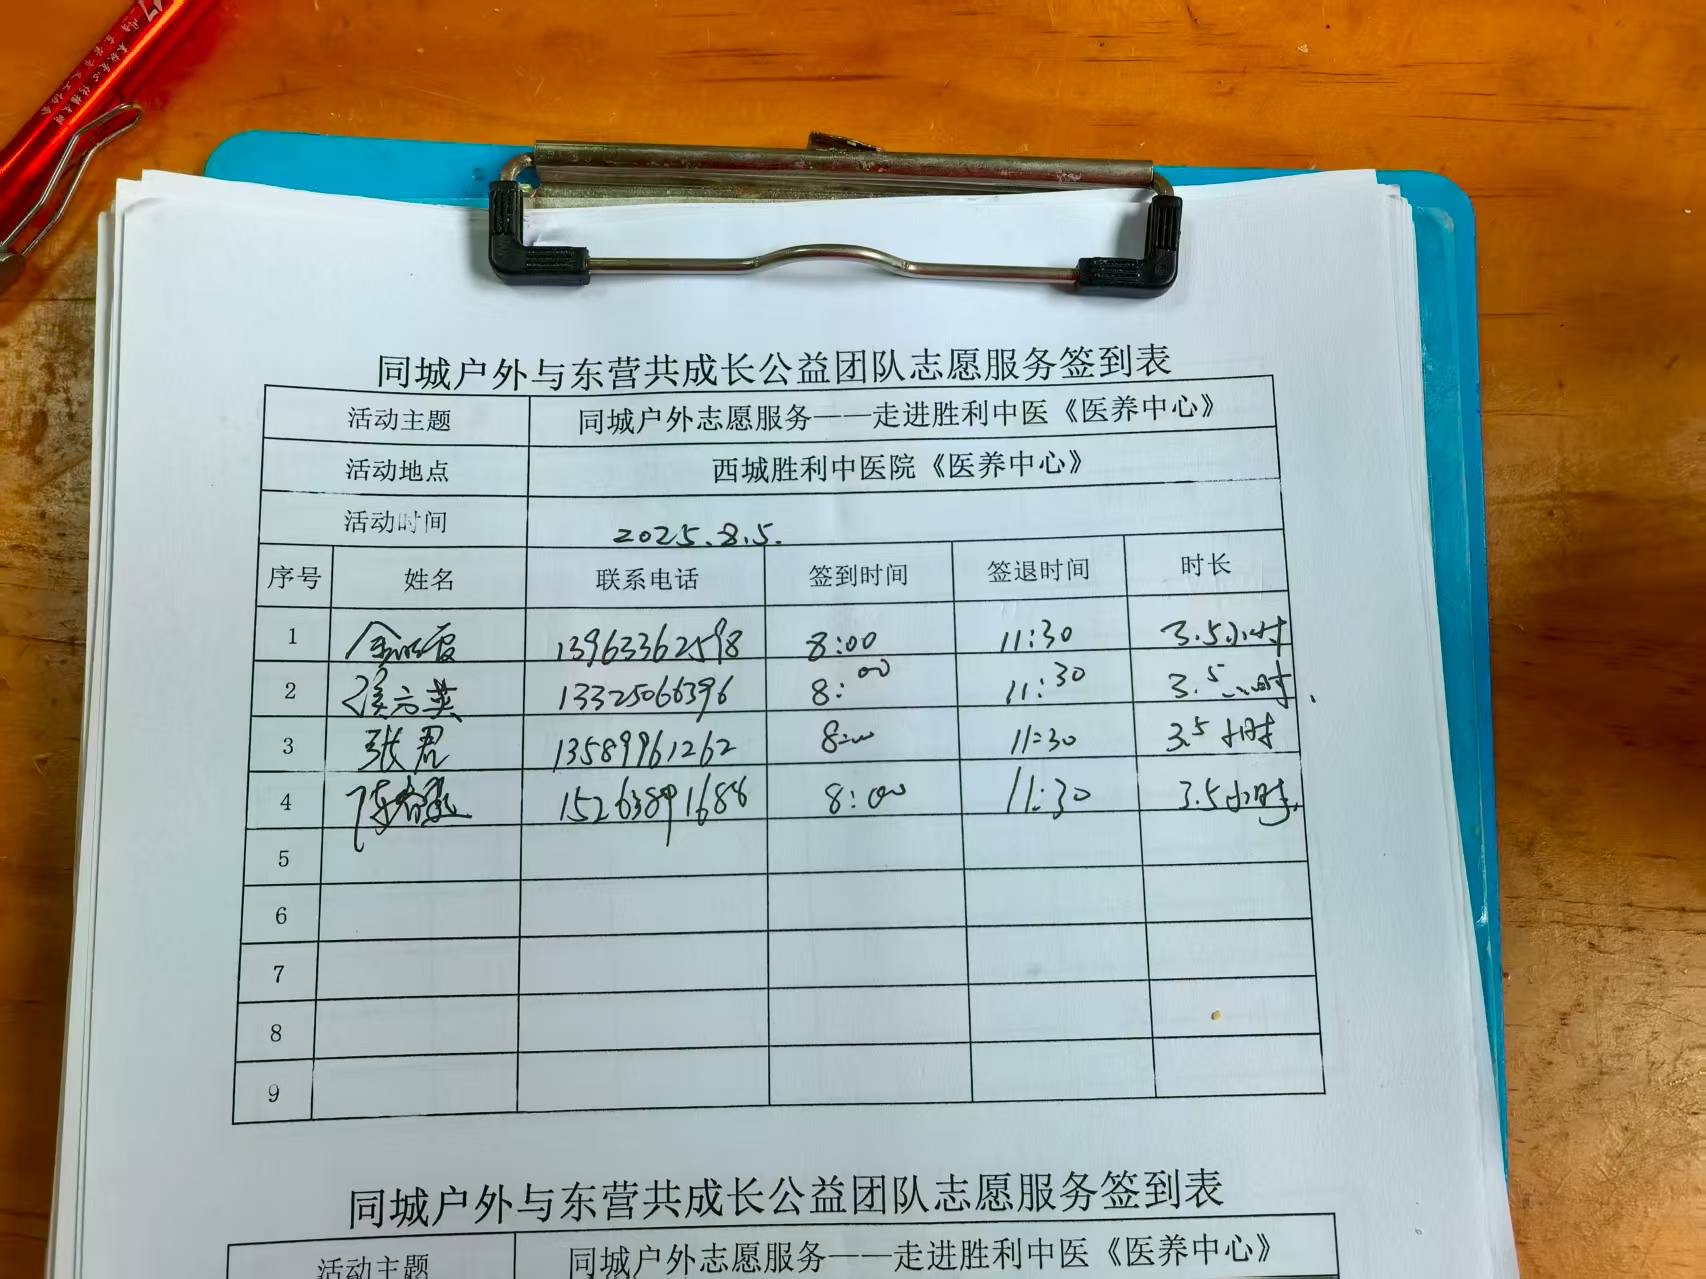 同城户外与东营共成长公益团队志愿服务签到表
活动主题 同城户外志愿服务——走进胜利中医《医养中心》
活动地点 西城胜利中医院《医养中心》
活动时间 2025.8.5.
序号 姓名 联系电话 签到时间 签退时间 时长
1 13963362598 8:00 11:30 3.5小时
2 13325066396 8:00 11:30 3.5小时
3 张君 13589961262 8:00 11:30 3.5小时
4 15263891686 8:00 11:30 3.5小时
5
6
7
8
9
同城户外与东营共成长公益团队志愿服务签到表
活动主题 同城户外志愿服务——走进胜利中医《医养中心》